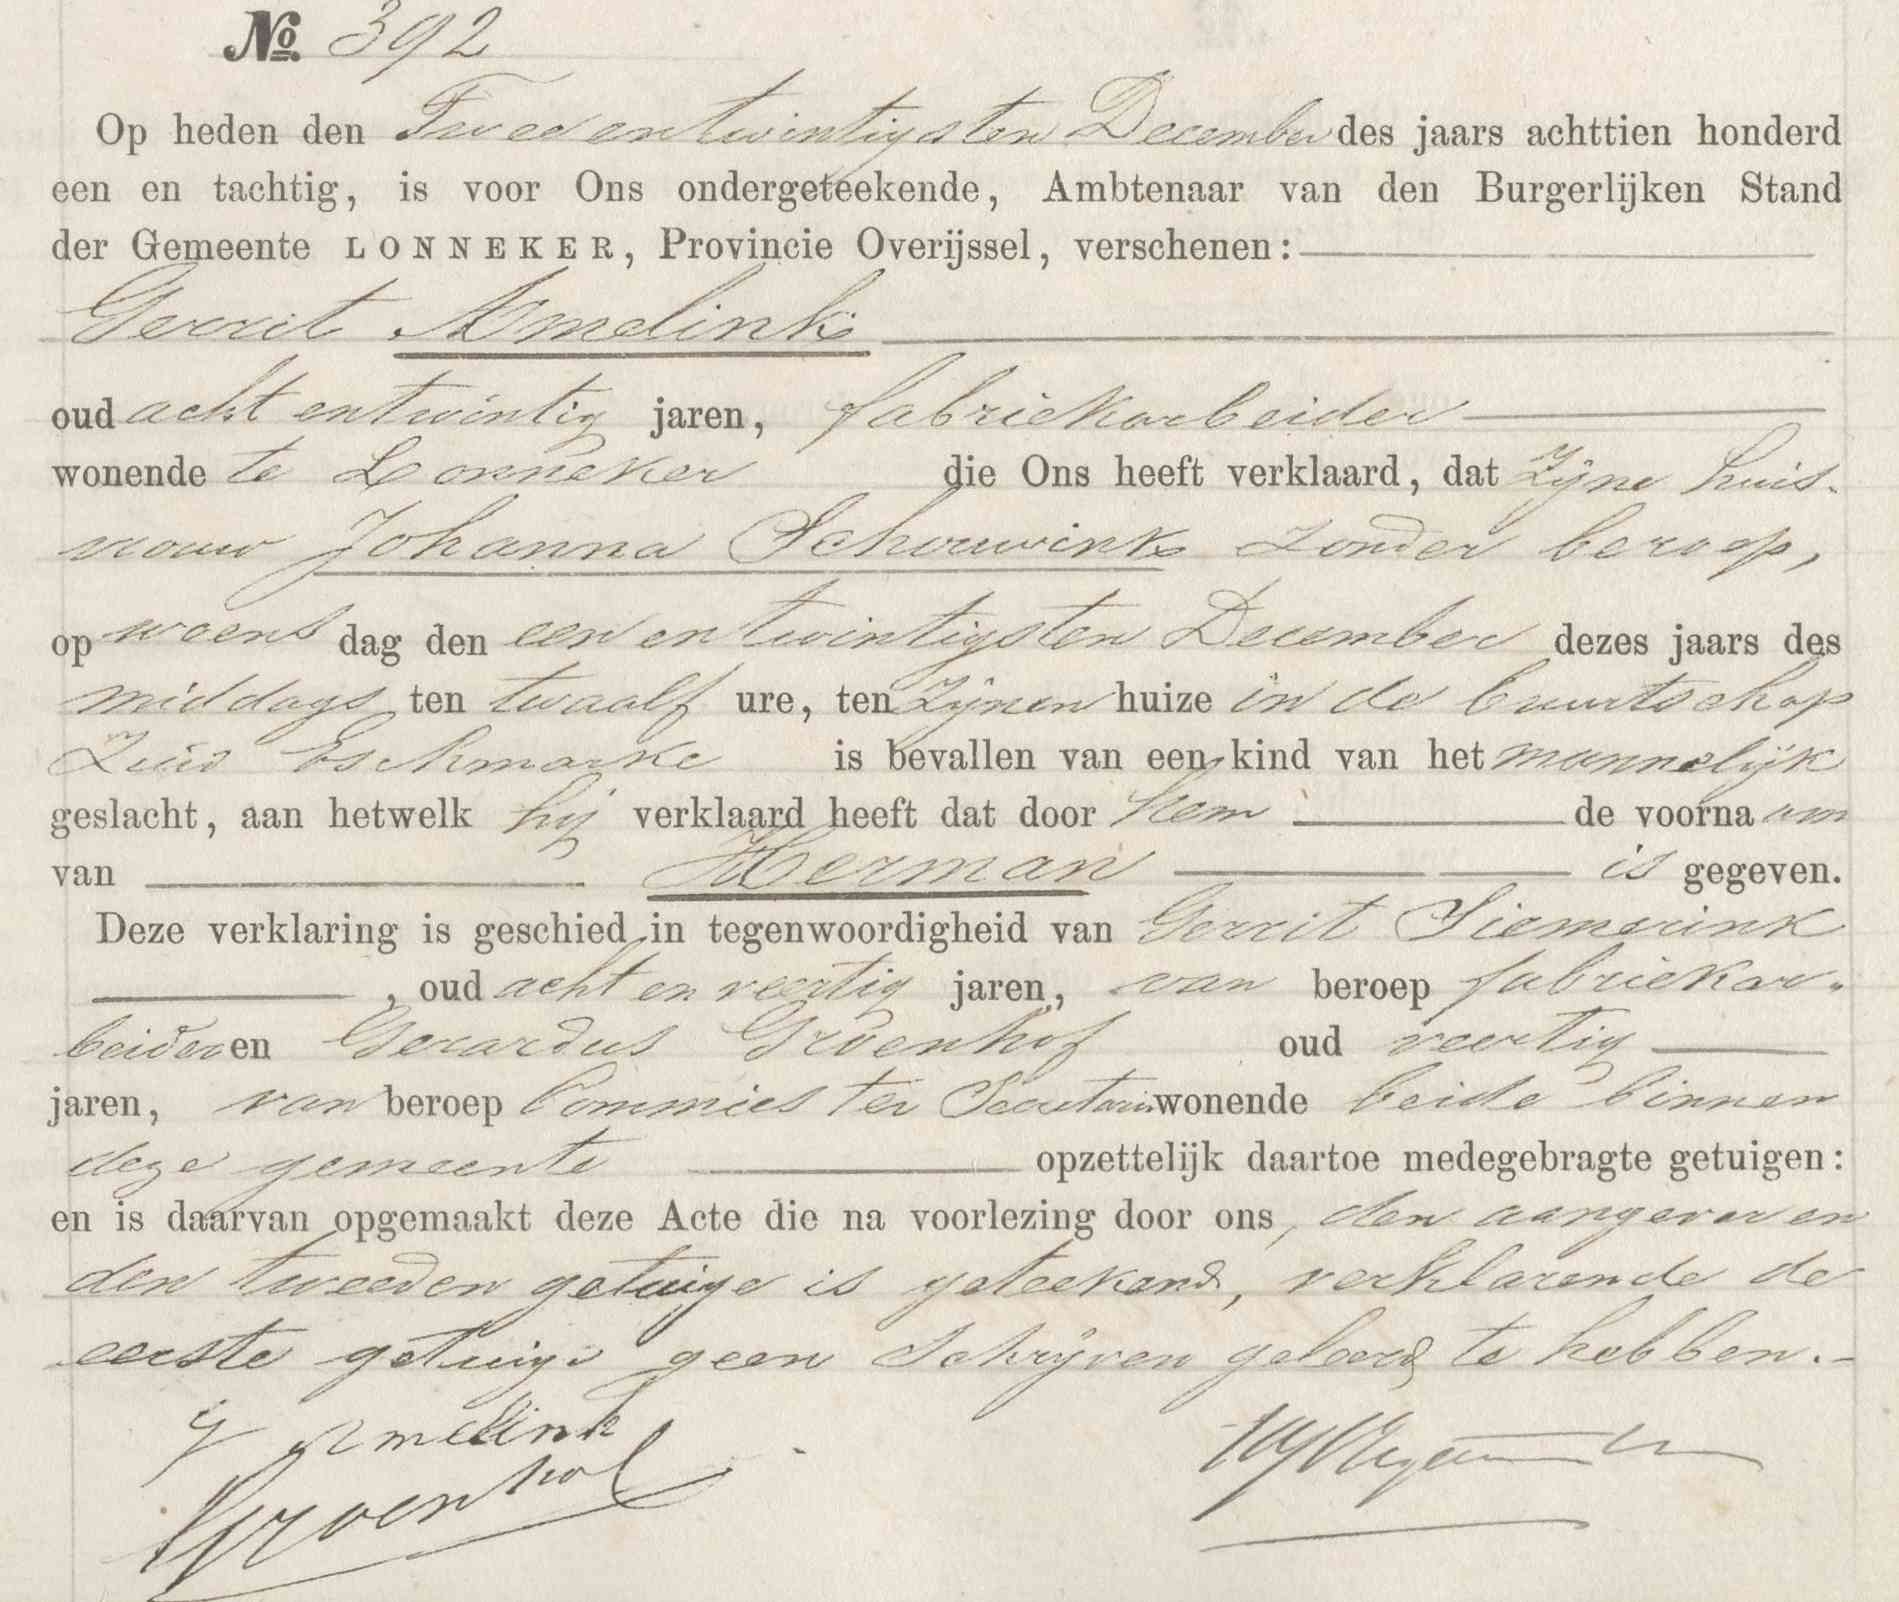 No. 392
Op heden den Twee en twintigsten December des jaars achttien honderd
een en tachtig, is voor Ons ondergeteekende, Ambtenaar van den Burgerlijken Stand
der Gemeente LONNEKER, Provincie Overijssel, verschenen:
Gerrit Amelink
oud acht en twintig jaren, fabriekarbeider
wonende te Lonneker die Ons heeft verklaard, dat Zijne huis-
vrouw Johanna Schouwink zonder beroep,
op woens dag den een en twintigsten December dezes jaars des
middags ten twaalf ure, ten Zijnen huize in de buurtschap
Zuid Eschmarke is bevallen van een kind van het mannelijk
geslacht, aan hetwelk hij verklaard heeft dat door hem de voorna am
van Herman is gegeven.
Deze verklaring is geschied in tegenwoordigheid van Gerrit Siemerink
, oud acht en veertig jaren, van beroep fabriekar-
beider en Gerardus Groenhof oud veertig
jaren, van beroep Commies ter Secretarie wonende beide binnen
deze gemeente opzettelijk daartoe medegebragte getuigen:
en is daarvan opgemaakt deze Acte die na voorlezing door ons, den aangever en
den tweeden getuige is geteekend, verklarende de
eerste getuige geen schrijven geleerd te hebben.-
G Amelink
Groenhof